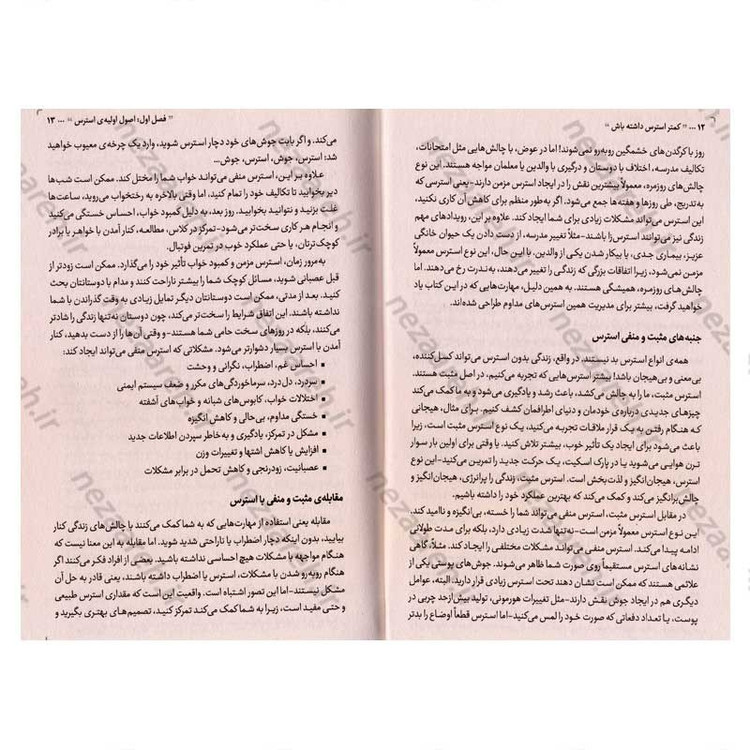 ۱۲ ... " کمتر استرس داشته باش "
روز با کرگدن های خشمگین روبه‌رو نمی‌شوند! اما در عوض، با چالش‌هایی مثل امتحانات،
تکالیف مدرسه، اختلاف با دوستان و درگیری با والدین یا معلمان مواجه هستند. این نوع
چالش‌های روزمره، معمولاً بیشترین نقش را در ایجاد استرس مزمن دارند-یعنی استرسی که
به‌تدریج، طی روزها و هفته‌ها جمع می‌شود. اگر به‌طور منظم برای کاهش آن کاری نکنید،
این استرس می‌تواند مشکلات زیادی برای شما ایجاد کند. علاوه بر این، رویدادهای مهم
زندگی نیز می‌توانند استرس‌زا باشند-مثلاً تغییر مدرسه، از دست دادن یک حیوان خانگی
عزیز، بیماری جدی، یا بیکار شدن یکی از والدین. با این حال، این نوع استرس معمولاً
مزمن نمی‌شود، زیرا اتفاقات بزرگی که زندگی را تغییر می‌دهند، به‌ندرت رخ می‌دهند. اما
چالش‌های روزمره، همیشگی هستند. به همین دلیل، مهارت‌هایی که در این کتاب یاد
خواهید گرفت، بیشتر برای مدیریت همین استرس‌های مداوم طراحی شده‌اند.
جنبه‌های مثبت و منفی استرس
همه‌ی انواع استرس بد نیستند. در واقع، زندگی بدون استرس می‌تواند کسل‌کننده،
بی‌معنی و بی‌هیجان باشد! بیشتر استرس‌هایی که تجربه می‌کنیم، در اصل مثبت هستند.
استرس مثبت، ما را به چالش می‌کشد، باعث رشد و یادگیری می‌شود و به ما کمک می‌کند
چیزهای جدیدی درباره‌ی خودمان و دنیای اطرافمان کشف کنیم. برای مثال، هیجانی
که هنگام رفتن به یک قرار ملاقات تجربه می‌کنید، یک نوع استرس مثبت است، زیرا
باعث می‌شود برای ایجاد یک تأثیر خوب، بیشتر تلاش کنید. یا وقتی برای اولین بار سوار
ترن هوایی می‌شوید یا در پارک اسکیت، یک حرکت جدید را تمرین می‌کنید-این نوع
استرس، هیجان‌انگیز و لذت‌بخش است. استرس مثبت، زندگی را پرانرژی، هیجان‌انگیز و
چالش‌برانگیز می‌کند و کمک می‌کند که بهترین عملکرد خود را داشته باشیم.
در مقابل استرس مثبت، استرس منفی می‌تواند شما را خسته، بی‌انگیزه و ناامید کند.
این نوع استرس معمولاً مزمن است-نه‌تنها شدت زیادی دارد، بلکه برای مدت طولانی
ادامه پیدا می‌کند. استرس منفی می‌تواند مشکلات مختلفی را ایجاد کند. مثلاً، گاهی
نشانه‌های استرس مستقیماً روی صورت شما ظاهر می‌شوند. جوش‌های پوستی یکی از
علائمی هستند که ممکن است نشان دهند تحت استرس زیادی قرار دارید. البته، عوامل
دیگری هم در ایجاد جوش نقش دارند-مثل تغییرات هورمونی، تولید بیش‌ازحد چربی در
پوست، یا تعداد دفعاتی که صورت خود را لمس می‌کنید-اما استرس قطعاً اوضاع را بدتر
" فصل اول: اصول اولیه‌ی استرس " ... ۱۳
می‌کند. و اگر بابت جوش‌های خود دچار استرس شوید، وارد یک چرخه‌ی معیوب خواهید
شد: استرس، جوش، استرس، جوش...
علاوه بر این، استرس منفی می‌تواند خواب شما را مختل کند. ممکن است شب‌ها
دیر بخوابید تا تکالیف خود را تمام کنید، اما وقتی بالاخره به رختخواب می‌روید، ساعت‌ها
غلت بزنید و نتوانید بخوابید. روز بعد، به دلیل کمبود خواب، احساس خستگی می‌کنید
و انجام هر کاری سخت‌تر می‌شود-تمرکز در کلاس، مطالعه، کنار آمدن با خواهر یا برادر
کوچک‌ترتان، یا حتی عملکرد خوب در تمرین فوتبال.
به‌مرور زمان، استرس مزمن و کمبود خواب تأثیر خود را می‌گذارد. ممکن است زودتر از
قبل عصبانی شوید، مسائل کوچک شما را بیشتر ناراحت کنند و مدام با دوستانتان بحث
کنید. بعد از مدتی، ممکن است دوستانتان دیگر تمایل زیادی به وقت گذراندن با شما
نداشته باشند. این اتفاق شرایط را سخت‌تر می‌کند، چون دوستان نه‌تنها زندگی را شادتر
می‌کنند، بلکه در روزهای سخت حامی شما هستند-و وقتی آن‌ها را از دست بدهید، کنار
آمدن با استرس بسیار دشوارتر می‌شود. مشکلاتی که استرس منفی می‌تواند ایجاد کند:
▪ احساس غم، اضطراب، نگرانی و وحشت
▪ سردرد، دل‌درد، سرماخوردگی‌های مکرر و ضعف سیستم ایمنی
▪ اختلالات خواب، کابوس‌های شبانه و خواب‌های آشفته
▪ خستگی مداوم، بی‌حالی و کاهش انگیزه
▪ مشکل در تمرکز، یادگیری و به‌خاطر سپردن اطلاعات جدید
▪ افزایش یا کاهش اشتها و تغییرات وزن
▪ عصبانیت، زودرنجی و کاهش تحمل در برابر مشکلات
مقابله‌ی مثبت و منفی با استرس
مقابله یعنی استفاده از مهارت‌هایی که به ما کمک می‌کنند با چالش‌های زندگی کنار
بیایید، بدون اینکه دچار اضطراب یا ناراحتی شدید شوید. اما مقابله به این معنا نیست که
هنگام مواجهه با مشکلات هیچ احساسی نداشته باشید. بعضی از افراد فکر می‌کنند اگر
هنگام روبه‌رو شدن با مشکلات، استرس یا اضطراب داشته باشند، یعنی قادر به حل آن
مشکل نیستند-اما این تصور اشتباه است. واقعیت این است که مقداری استرس طبیعی
و حتی مفید است، زیرا به شما کمک می‌کند تمرکز کنید، تصمیم‌های بهتری بگیرید و
nezaareh.ir